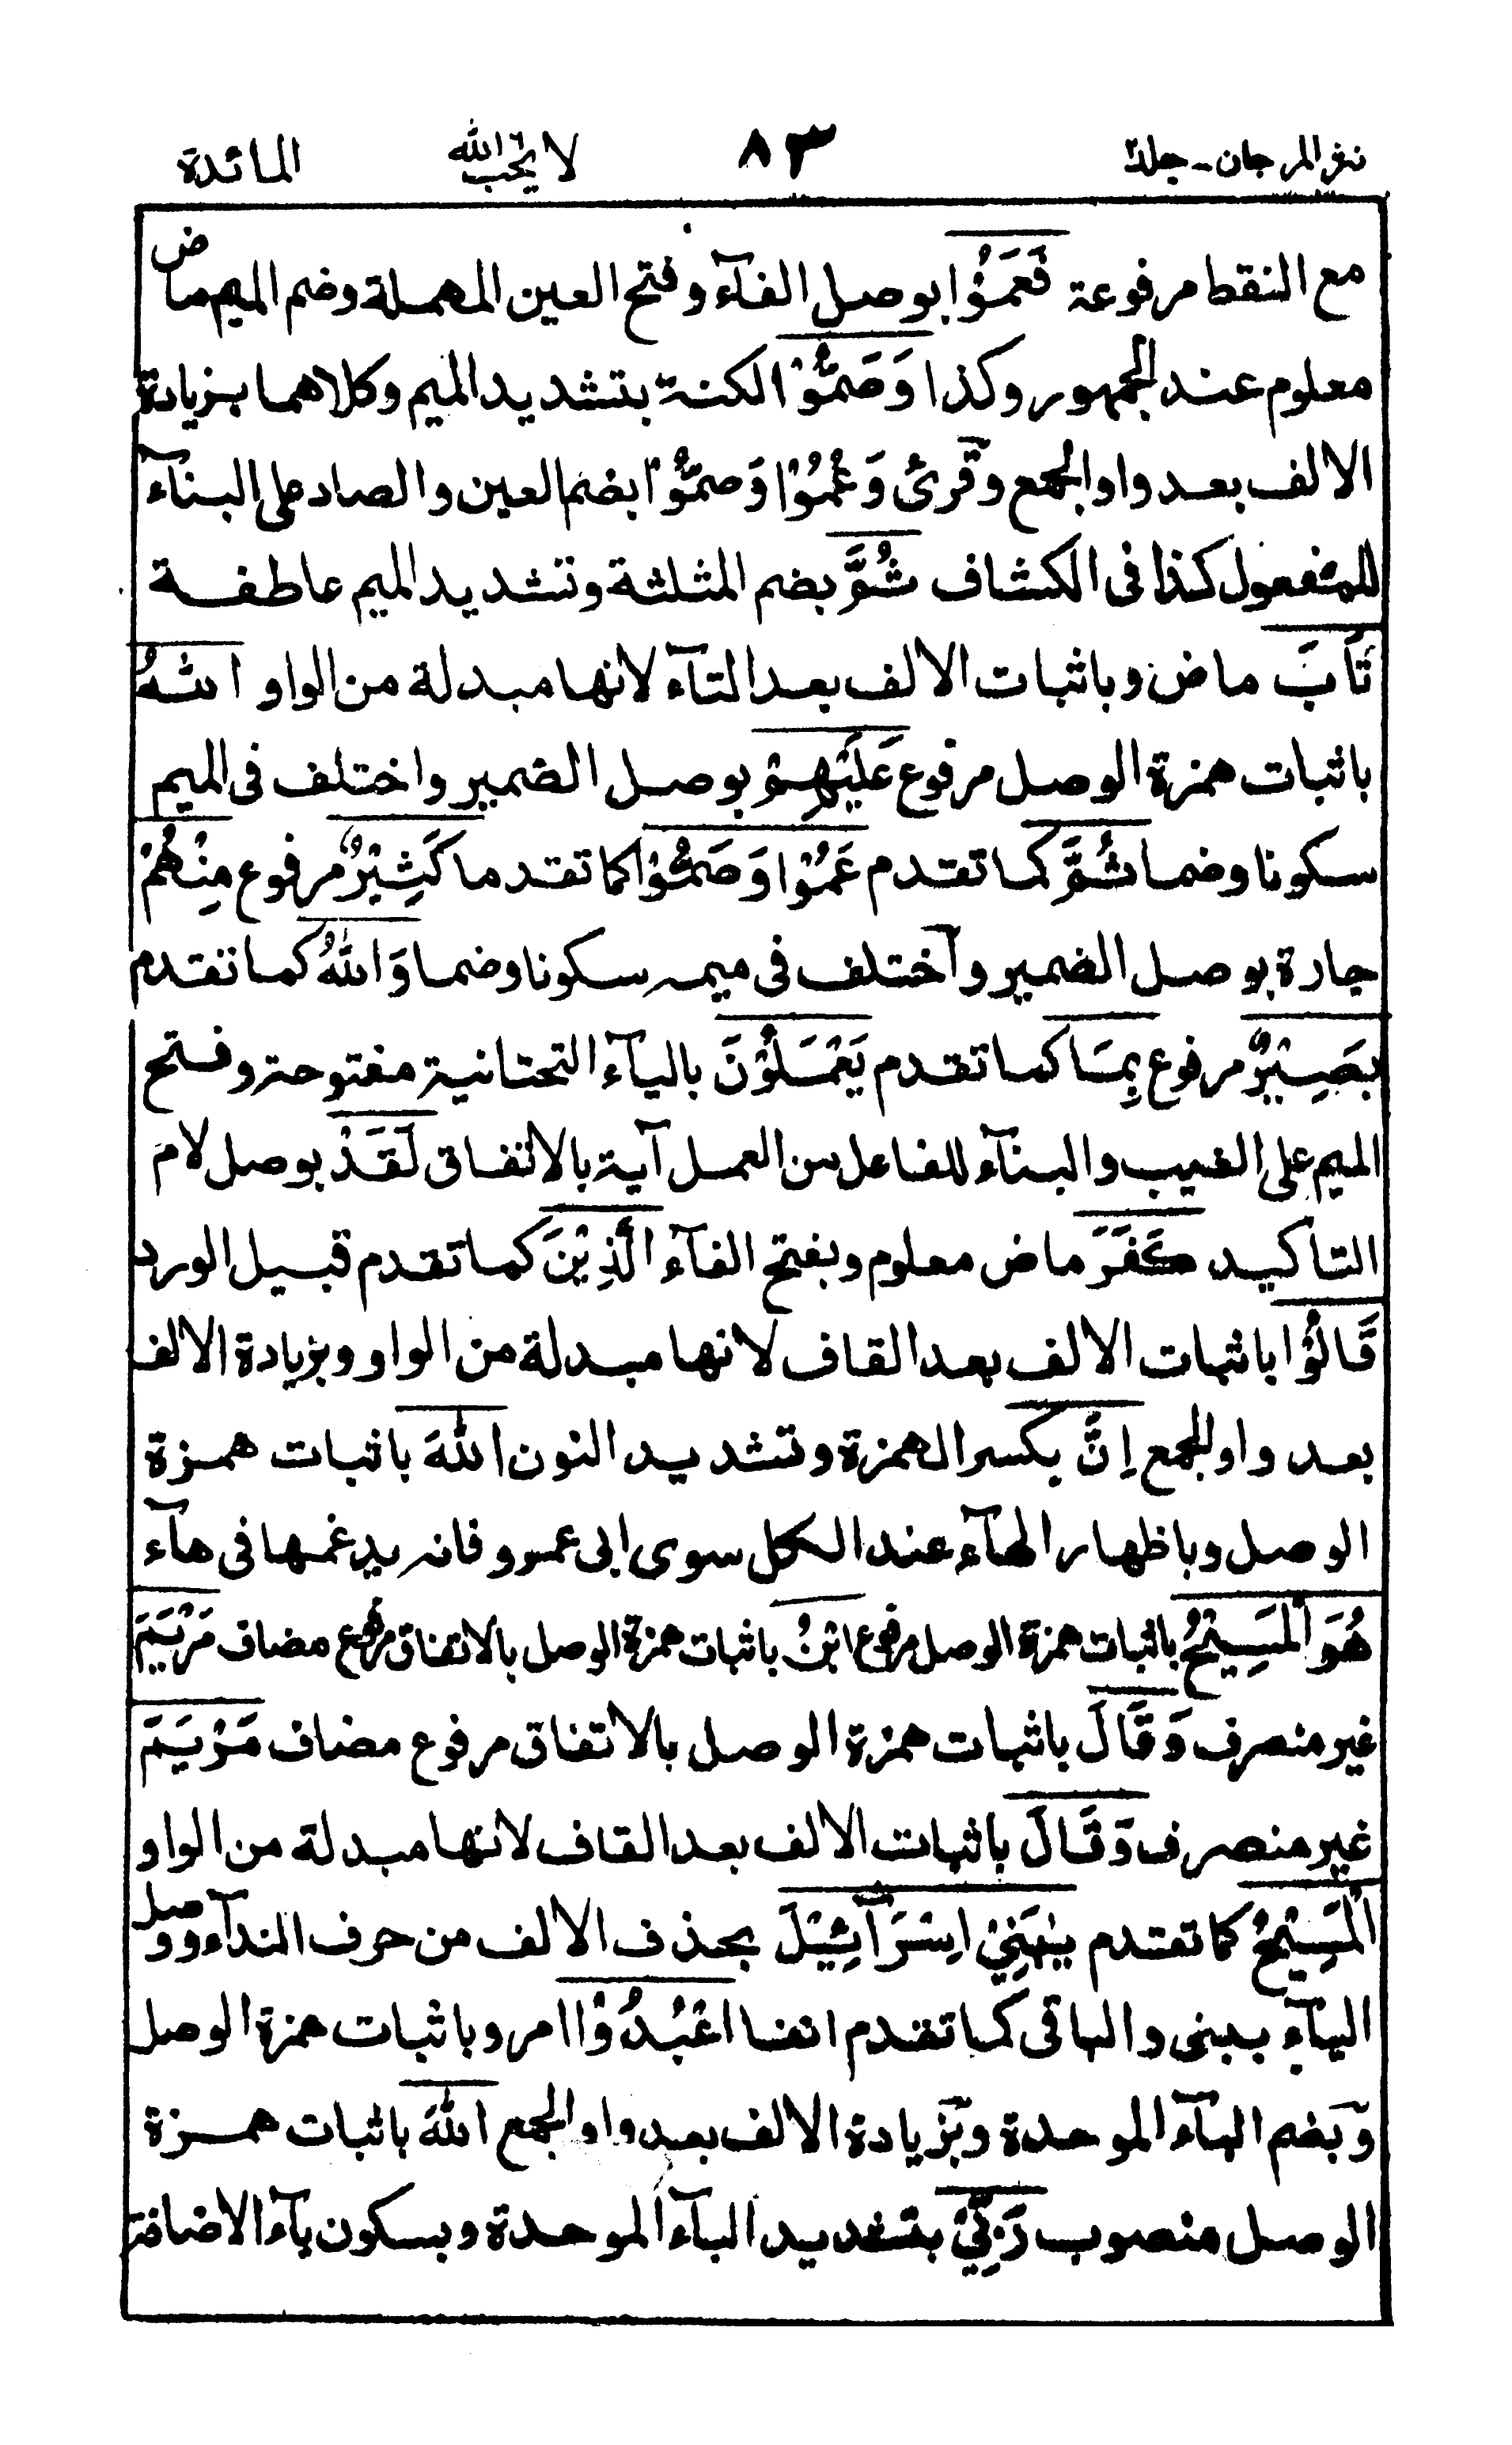 نثر المرجان - جلد ٢ ٨٣ لا يحب الله المائدة
مع النقط مرفوعة فَعَمُوْا بوصل الفآء وفتح العين المهملة وضم الميم ماض
معلوم عند الجمهور وكذا وَصَمُّوْا لكنه بتشديد الميم وكلاهما بزيادة
الالف بعد واو الجمع وقرئ وَعُمُوْا وَصُمُّوْا بضم العين والصاد على البنآء
للمفعول كذا فى الكشاف ثُمَّ بضم المثلثة وتشديد الميم عاطفة
تَابَ ماض وباثبات الالف بعد التآء لانها مبدلة من الواو اللهُ
باثبات همزة الوصل مرفوع عَلَيْهِمْ بوصل الضمير واختلف فى الميم
سكونا وضما ثُمَّ كما تقدم عَمُوْا وَصَمُّوْا كما تقدما كَثِيْرٌ مرفوع مِنْهُمْ
جارة بوصل الضمير واختلف فى ميمه سكونا وضما وَاللهُ كما تقدم
بَصِيْرٌ مرفوع بِمَا كما تقدم يَعْمَلُوْنَ باليآء التحتانية مفتوحة وفتح
الميم على الغيب والبنآء للفاعل من العمل آية بالاتفاق لَقَدْ بوصل لام
التاكيد كَفَرَ ماض معلوم وبفتح الفآء الَّذِيْنَ كما تقدم قبيل الورد
قَالُوْا باثبات الالف بعد القاف لانها مبدلة من الواو وبزيادة الالف
بعد واو الجمع اِنَّ بكسر الهمزة وتشديد النون اللهَ باثبات همزة
الوصل وباظهار الهآء عند الكل سوى ابى عمرو فانه يدغمها فى هآء
هُوَ الْمَسِيْحُ باثبات همزة الوصل مرفوع ابْنُ باثبات همزة الوصل بالاتفاق مرفوع مضاف مَرْيَمَ
غير منصرف وَقَالَ باثبات همزة الوصل بالاتفاق مرفوع مضاف مَرْيَمَ
غير منصرف وَقَالَ باثبات الالف بعد القاف لانها مبدلة من الواو
الْمَسِيْحُ كما تقدم يٰبَنِيْ اِسْرَآئِيْلَ بحذف الالف من حرف الندآء ووصل
اليآء ببنى والباقى كما تقدم انفا اعْبُدُوْا امر وباثبات همزة الوصل
وبضم البآء الموحدة وبزيادة الالف بعد واو الجمع اللهَ باثبات همزة
الوصل منصوب رَبِّيْ بتشديد البآء الموحدة وبسكون يآء الاضافة